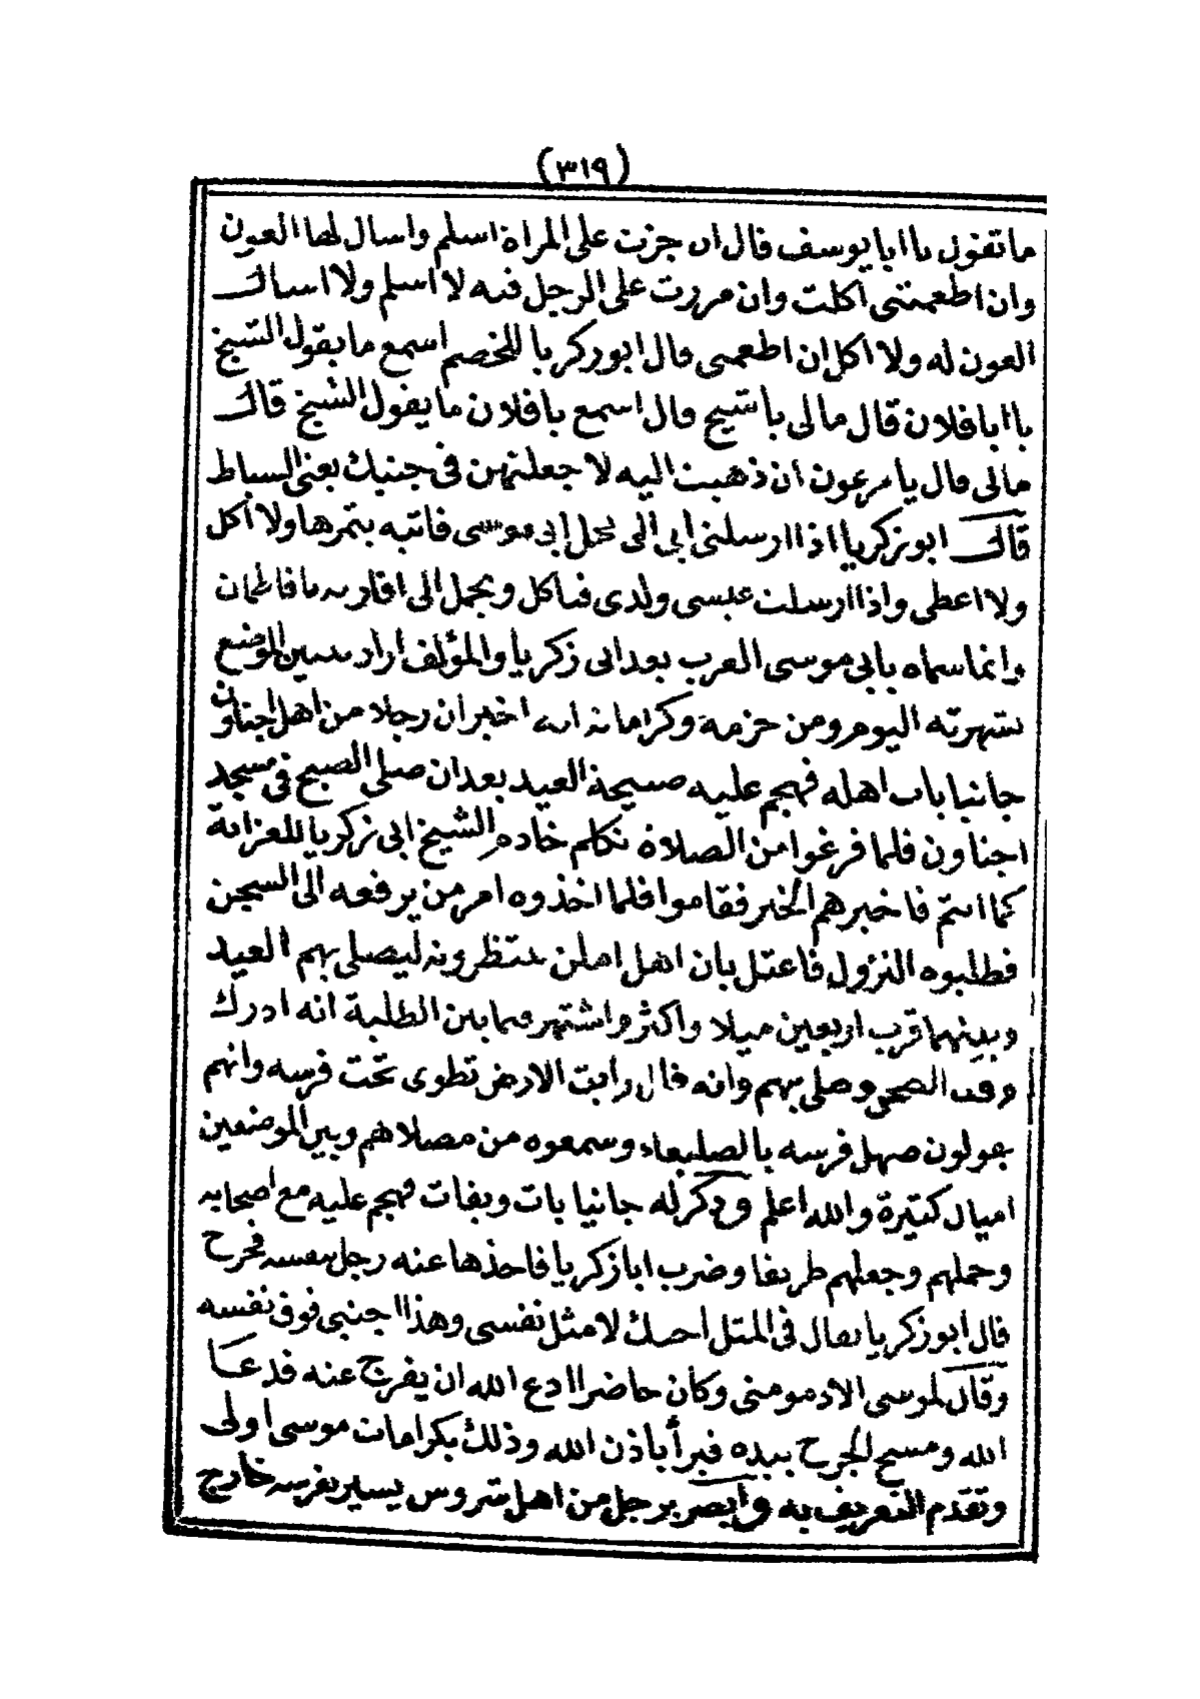 (٣١٩)
ما تقول يا ابا يوسف قال ان جزت على المراة اسلم واسال لها العون
وان اطعمتنى اكلت وان مررت على الرجل فيه لا اسلم ولا اسال
العون له ولا اكل ان اطعمنى قال ابو زكريا للخصم اسمع ما يقول الشيخ
يا ابا فلان قال مالى يا شيخ قال اسمع يا فلان ما يقول الشيخ قال
مالى قال يا فرعون ان ذهبت اليه لاجعلنهن فى جنبيك يعنى السياط
قال ابو زكريا اذا ارسلنى ابى الى نخل ابى موسى فاتيه بتمرها ولا اكل
ولا اعطى واذا ارسلت عيسى ولدى فياكل ويحمل الى اقاربه بافاطمان
وانما سماه بابى موسى العرب بعد ابى زكريا والمؤلف اراد تبيين الموضع
بشهرته اليوم ومن حزمه وكراماته انه اخبر ان رجلا من اهل اجناون
جانيا بات اهله فهجم عليه صبيحة العيد بعد ان صلى الصبح فى مسجد
اجناون فلما فرغوا من الصلاة تكلم خادم الشيخ ابى زكريا للعزابة
كما انتم فاخبرهم الخبر فقاموا فلما اخذوه امر من يرفعه الى السجن
فطلبوه النزول فاعتل بان اهل املن ينتظرونه ليصلى بهم العيد
وبينهما قرب اربعين ميلا واكثر واشتهر فيما بين الطلبة انه ادرك
وقت الضحى وصلى بهم وانه قال رايت الارض تطوى تحت فرسه وانهم
يقولون صهل فرسه بالصلبعاء وسمعوه من مصلاهم وبين الموضعين
اميال كثيرة والله اعلم وذكر له جانيا بات وبفات فهجم عليه مع اصحابه
وحملهم وجعلهم طريقا وضرب ابا زكريا فاخذها عنه رجل بنفسه فجرح
قال ابو زكريا يقال فى المثل احبك لا مثل نفسى وهذا اجنبى فوق نفسه
وقال لموسى الادمومنى وكان حاضرا ادع الله ان يفرج عنه فدعا
الله ومسح الجرح بيده فبرأ باذن الله وذلك بكرامات موسى اولى
وتقدم التعريف به وابصر برجل من اهل شروس يسير بفرسه خارج